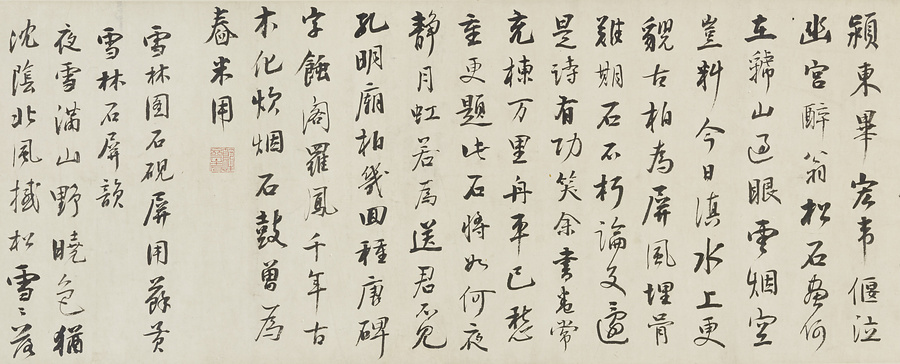 潁東畢宏韋偃泣
幽宮醉翁松石畫何
在虢山過眼雲烟空
豈料今日滇水上更
貌古柏為屏風埋骨
雖期石不朽論文還
是詩有功笑余書畫常
充棟万里舟車已愁
重更題此石將如何夜
靜月虹若為送君不見
孔明廟柏幾回種唐碑
字蝕閣羅鳳千年古
木化炊烟石鼓曾為
舂米用
雪林圖石硯屏用蘇黃
雪林石屏韻
夜雪滿山野曉色猶
沈陰北風撼松雪〻落